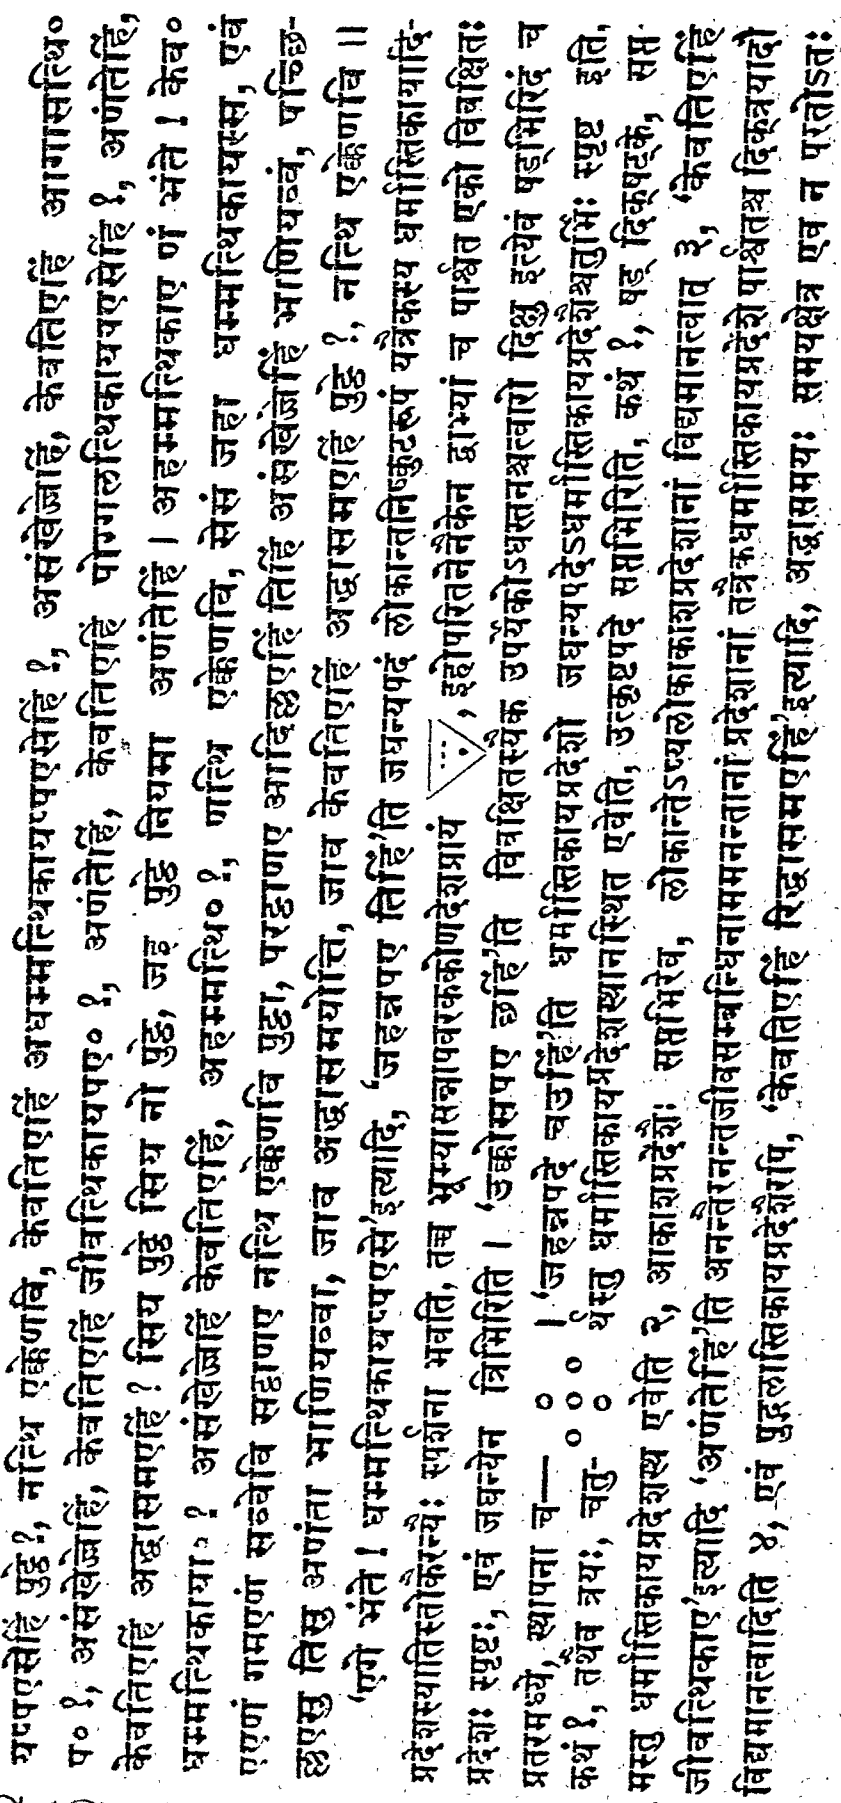 यप्पएसेहिं पुट्ठे?, नत्थि एक्केणवि, केवतिएहिं अधम्मत्थिकायप्पएसेहिं?, असंखेज्जेहिं, केवतिएहिं आगासत्थि०
प०?, असंखेज्जेहिं, केवतिएहिं जीवत्थिकायपए०?, अणंतेहिं, केवतिएहिं पोग्गलत्थिकायपएसेहिं?, अणंतेहिं,
केवतिएहिं अद्धासमएहिं? सिय पुट्ठे सिय नो पुट्ठे, जइ पुट्ठे नियमा अणंतेहिं । अहम्मत्थिकाए णं भंते! केव०
धम्मत्थिकाय०? असंखेज्जेहिं केवतिएहिं, अहम्मत्थि०?, णत्थि एक्केणवि, सेसं जहा धम्मत्थिकायस्स, एवं
एएणं गमएणं सव्वेवि सट्ठाणए नत्थि एक्केणवि पुट्ठा, परट्ठाणए आदिल्लएहिं तिहिं असंखेज्जेहिं भाणियव्वं, पच्छि-
ल्लएसु तिसु अणंता भाणियव्वा, जाव अद्धासमयोत्ति, जाव केवतिएहिं अद्धासमएहिं पुट्ठे?, नत्थि एक्केणवि ॥
'एगे भंते! धम्मत्थिकायप्पएसे'इत्यादि, 'जहन्नपए तिहिं'ति जघन्यपदं लोकान्तनिष्कुटरूपं यत्रैकस्य धर्मास्तिकायादि-
प्रदेशस्यातिस्तोकैरन्यैः स्पर्शना भवति, तच्च भूम्यासन्नापवरककोणदेशप्रायं , इहोपरितनेनैकेन द्वाभ्यां च पार्श्वत एको विवक्षितः
प्रदेशः स्पृष्टः, एवं जघन्येन त्रिभिरिति । 'उक्कोसपए छहिं'ति विवक्षितस्यैक उपर्येकोऽधस्तनश्चत्वारो दिक्षु इत्येवं षड्भिरिदं च
प्रतरमध्ये, स्थापना च— । 'जहन्नपदे चउहिं'ति धर्मास्तिकायप्रदेशो जघन्यपदेऽधर्मास्तिकायप्रदेशैश्चतुर्भिः स्पृष्ट इति,
कथं?, तथैव त्रयः, चतु- र्थस्तु धर्मास्तिकायप्रदेशस्थानस्थित एवेति, उत्कृष्टपदे सप्तभिरिति, कथं?, षड् दिक्षट्के, सप्त-
मस्तु धर्मास्तिकायप्रदेशस्थ एवेति २, आकाशप्रदेशैः सप्तभिरेव, लोकान्तेऽप्यलोकाकाशप्रदेशानां विद्यमानत्वात् ३, 'केवतिएहिं
जीवत्थिकाए'इत्यादि 'अणंतेहिं'ति अनन्तैरनन्तजीवसम्बन्धिनामनन्तानां प्रदेशानां तत्रैकधर्मास्तिकायप्रदेशे पार्श्वतश्च दिक्त्रयादौ
विद्यमानत्वादिति ४, एवं पुद्गलास्तिकायप्रदेशैरपि, 'केवतिएहिं रिद्धासमएहिं'इत्यादि, अद्धासमयः समयक्षेत्र एव न परतोऽतः